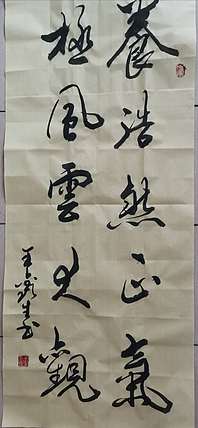 養浩然正氣
極風雲大觀